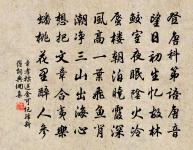 登唐科第語唐音
望日初生憶故林
鮫室夜眠陰火冷
蜃樓朝泊曉霞深
風高一葉飛魚背
潮淨三山出海心
想把文章合夷樂
蟠桃花裏醉人參
章孝標送金可記歸新
羅詩